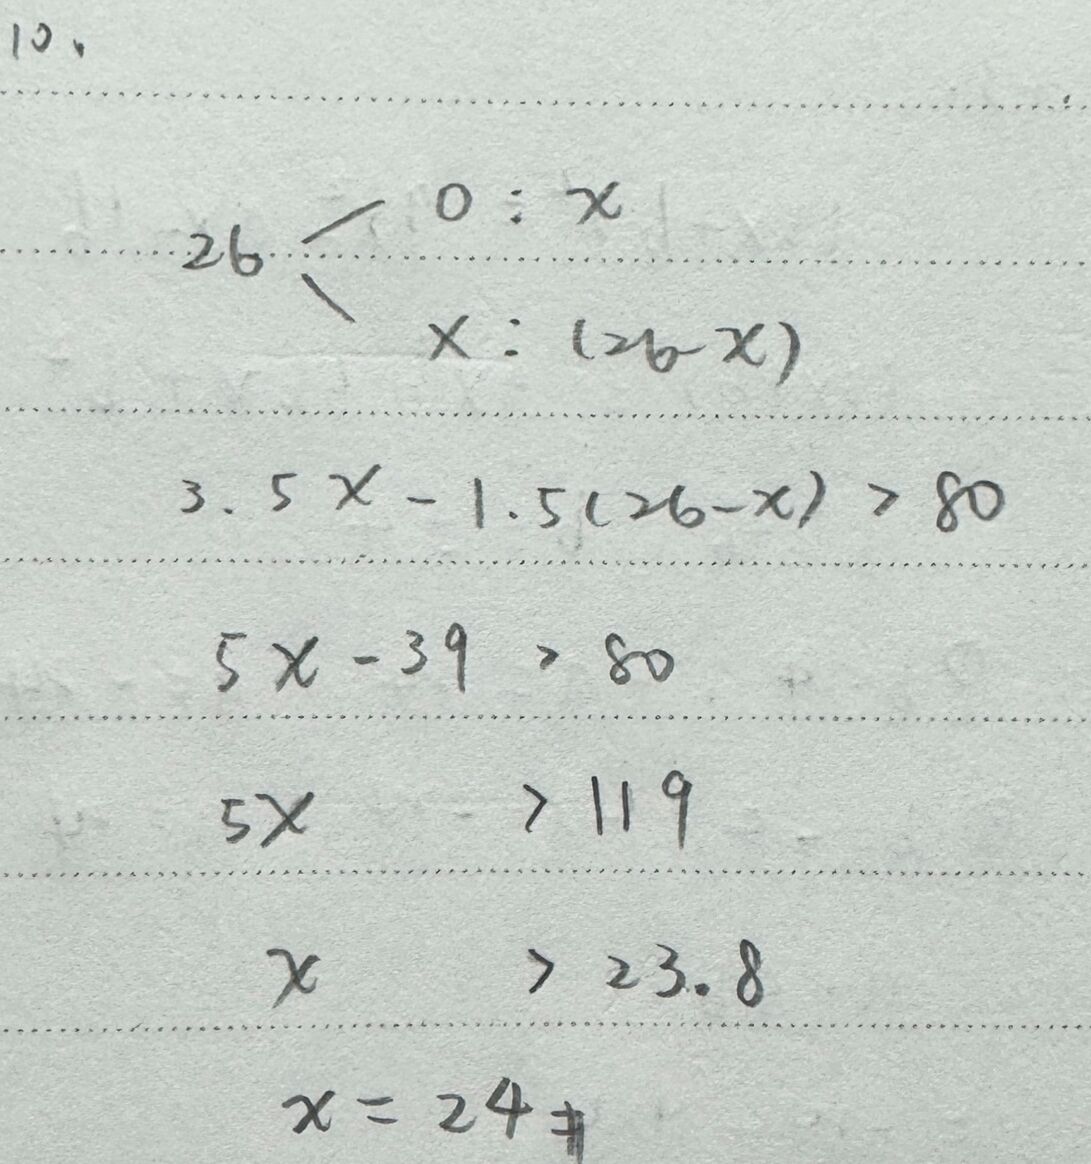 10.
0 : x
26 <
x : (26-x)
3.5x - 1.5(26-x) > 80
5x - 39 > 80
5x > 119
x > 23.8
x = 24